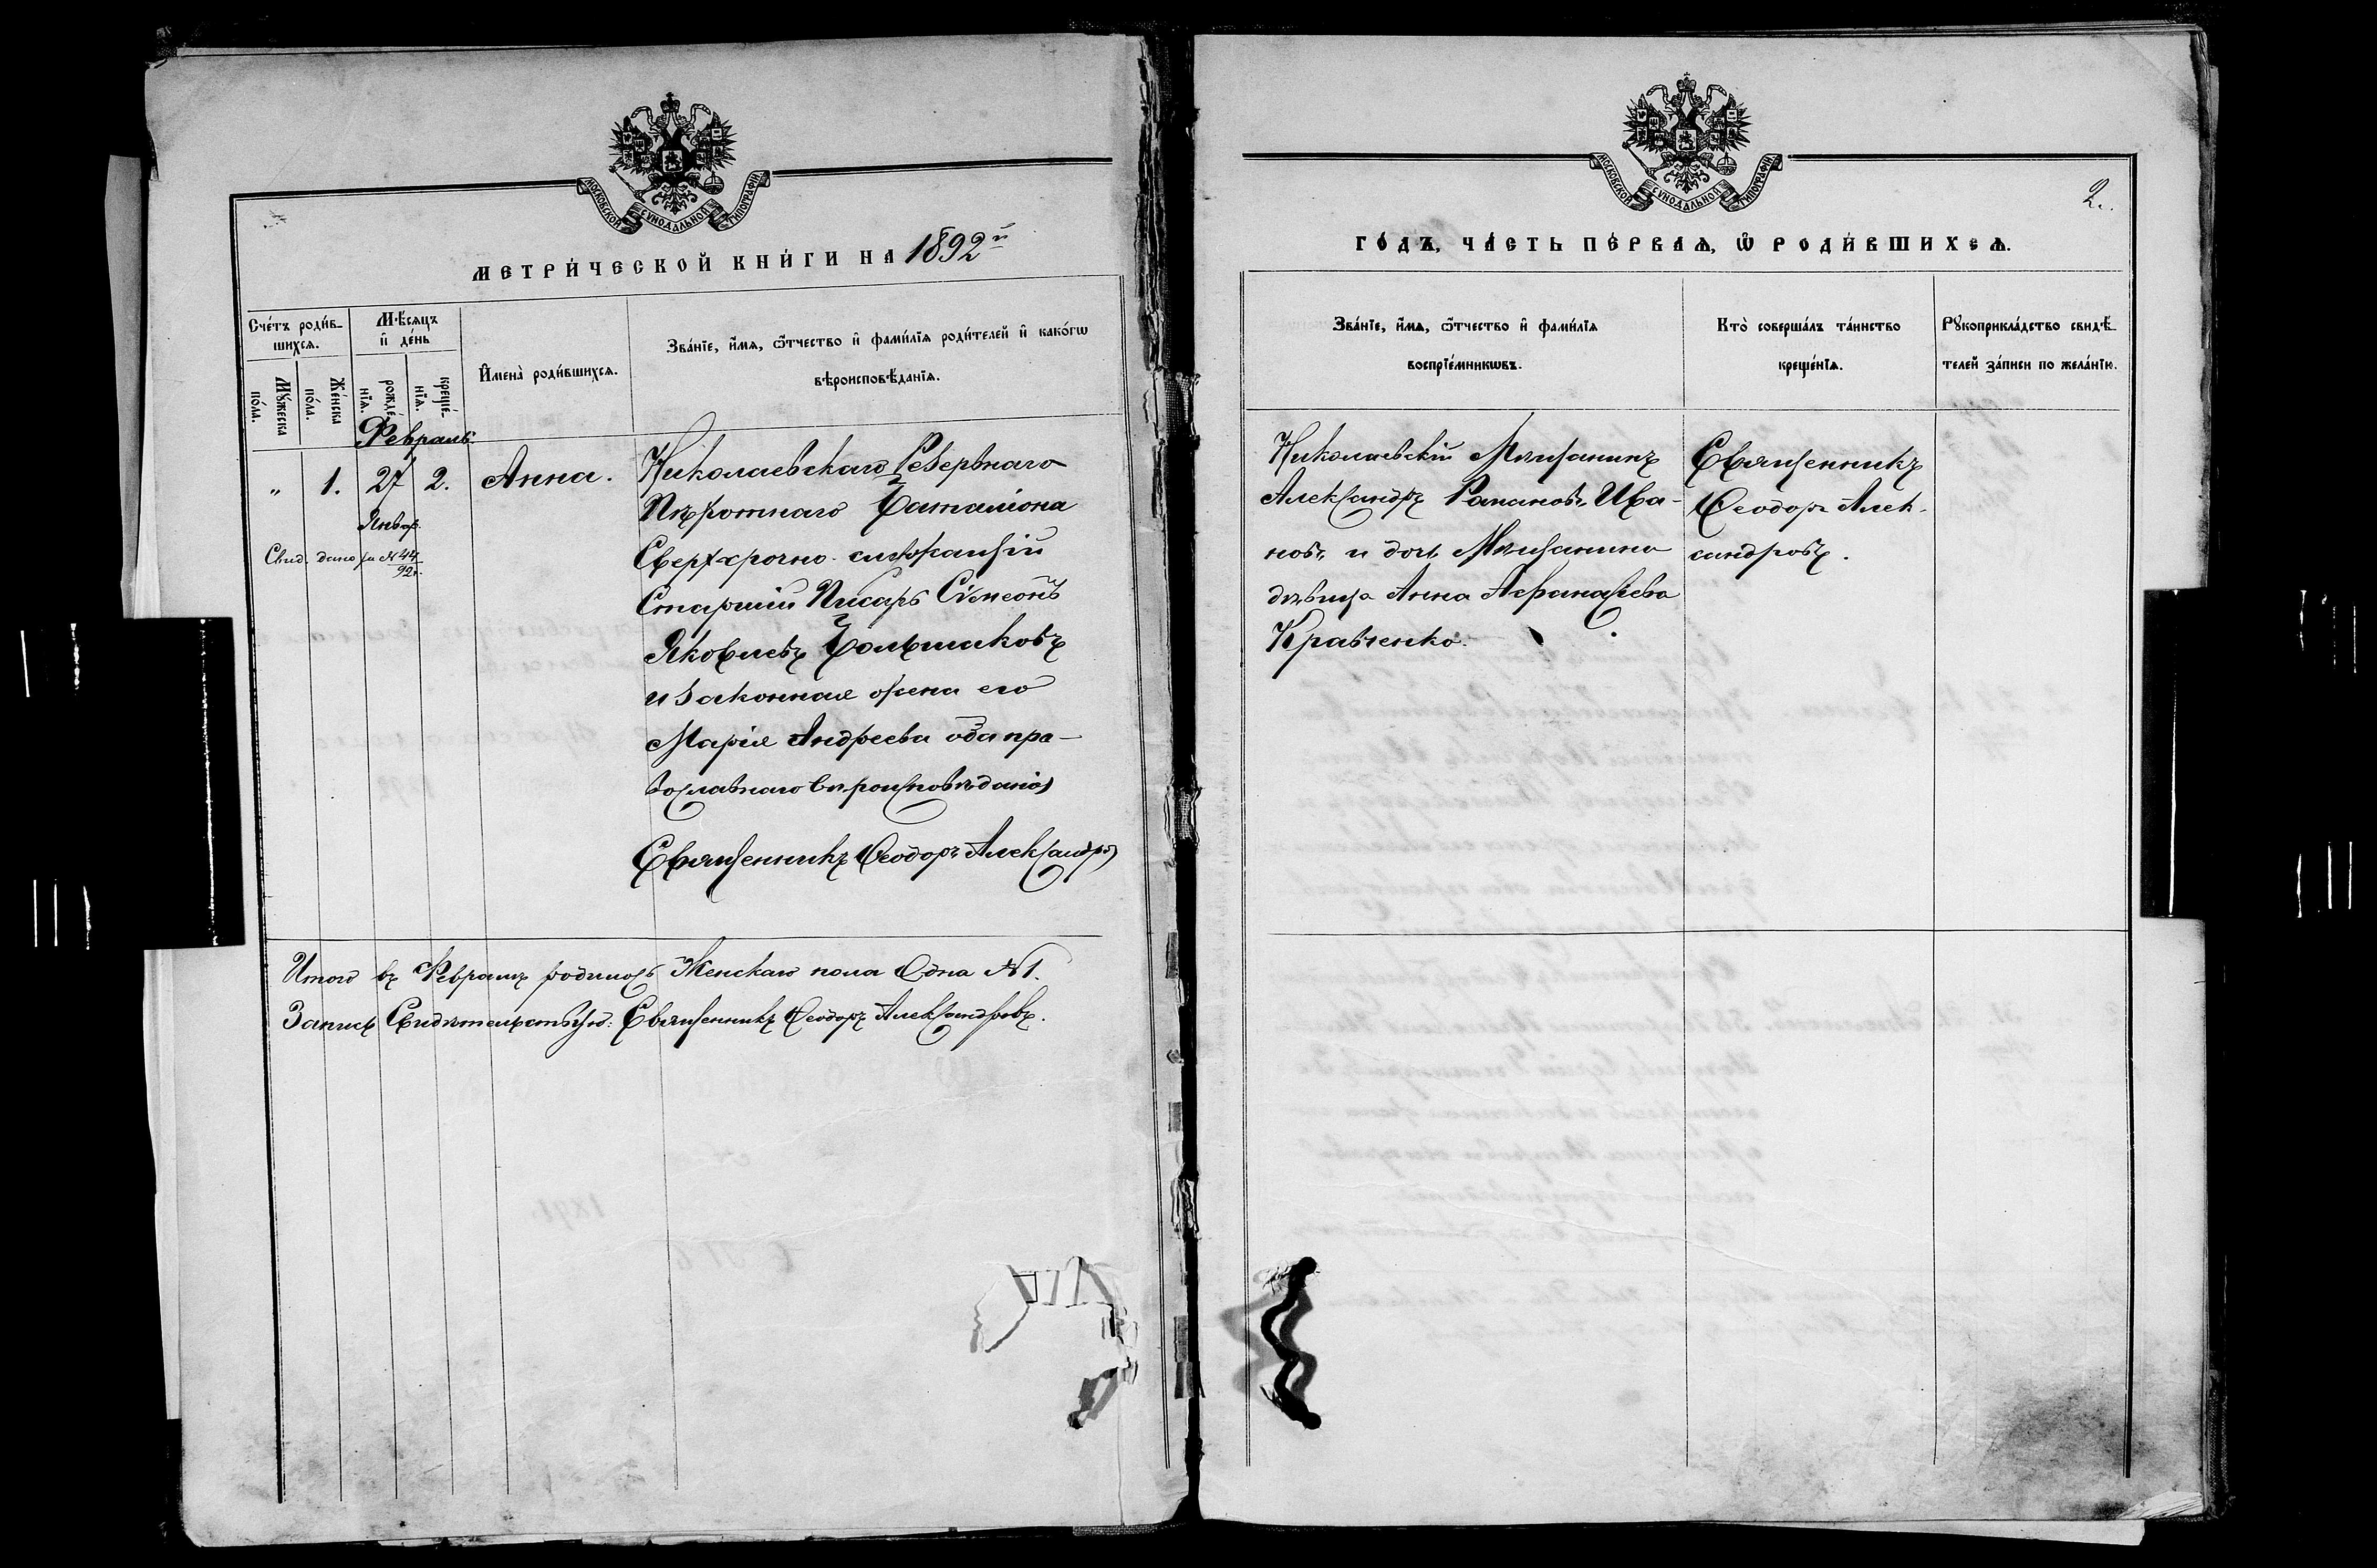 МОСКОВСКОЙ СѴНОДАЛЬНОЙ ТИПОГРАФІИ
МЕТРИ́ЧЕСКОЙ КНИ́ГИ НА 1892й
Сче́тъ роди́в-
шихсѧ.
Мꙋ́жеска
по́ла.
Же́нска
по́ла.
Мѣ́сѧцъ
и҆ де́нь
рожде́-
нїѧ.
креще́-
нїѧ.
И҆мена̀ роди́вшихсѧ.
Зва́нїе, и҆́мѧ, ѻ҆́тчество и҆ фами́лїѧ роди́телей и҆ како́гѡ
вѣроисповѣ́данїѧ.
Февраль.
„ 1. 27 2. Анна.
Январ.
Свид. дано за № 44/92г.
Николаевскаго Резервнаго
Пѣхотнаго Баталіона
Сверхсрочно-служащій
Старшій Писарь Сѵмеонъ
Яковлевъ Большаковъ
и законная жена его
Марія Андреева оба пра-
вославнаго вѣроисповѣданія
Священникъ Ѳеодоръ Александровъ
Итого въ Февралѣ родилось Женскаго пола Одна №1.
Запись Свидѣтельствую: Священникъ Ѳеодоръ Александровъ.
МОСКОВСКОЙ СѴНОДАЛЬНОЙ ТИПОГРАФІИ
2.
ГО́ДЪ, ЧА́СТЬ ПЕ́РВАѦ, Ѽ РОДИ́ВШИХСѦ.
Зва́нїе, и҆́мѧ, ѻ҆́тчество и҆ фами́лїѧ
воспрїе́мникѡвъ.
Кто̀ соверша́лъ та́инство
креще́нїѧ.
Рꙋкоприкла́дство свидѣ́-
телей за́писи по жела́нїю.
Николаевскій Мѣщанинъ
Александръ Романовъ Ива-
новъ и дочь Мѣщанина
дѣвица Анна Афанасіева
Кравченко.
Священникъ
Ѳеодоръ Алек-
сандровъ.